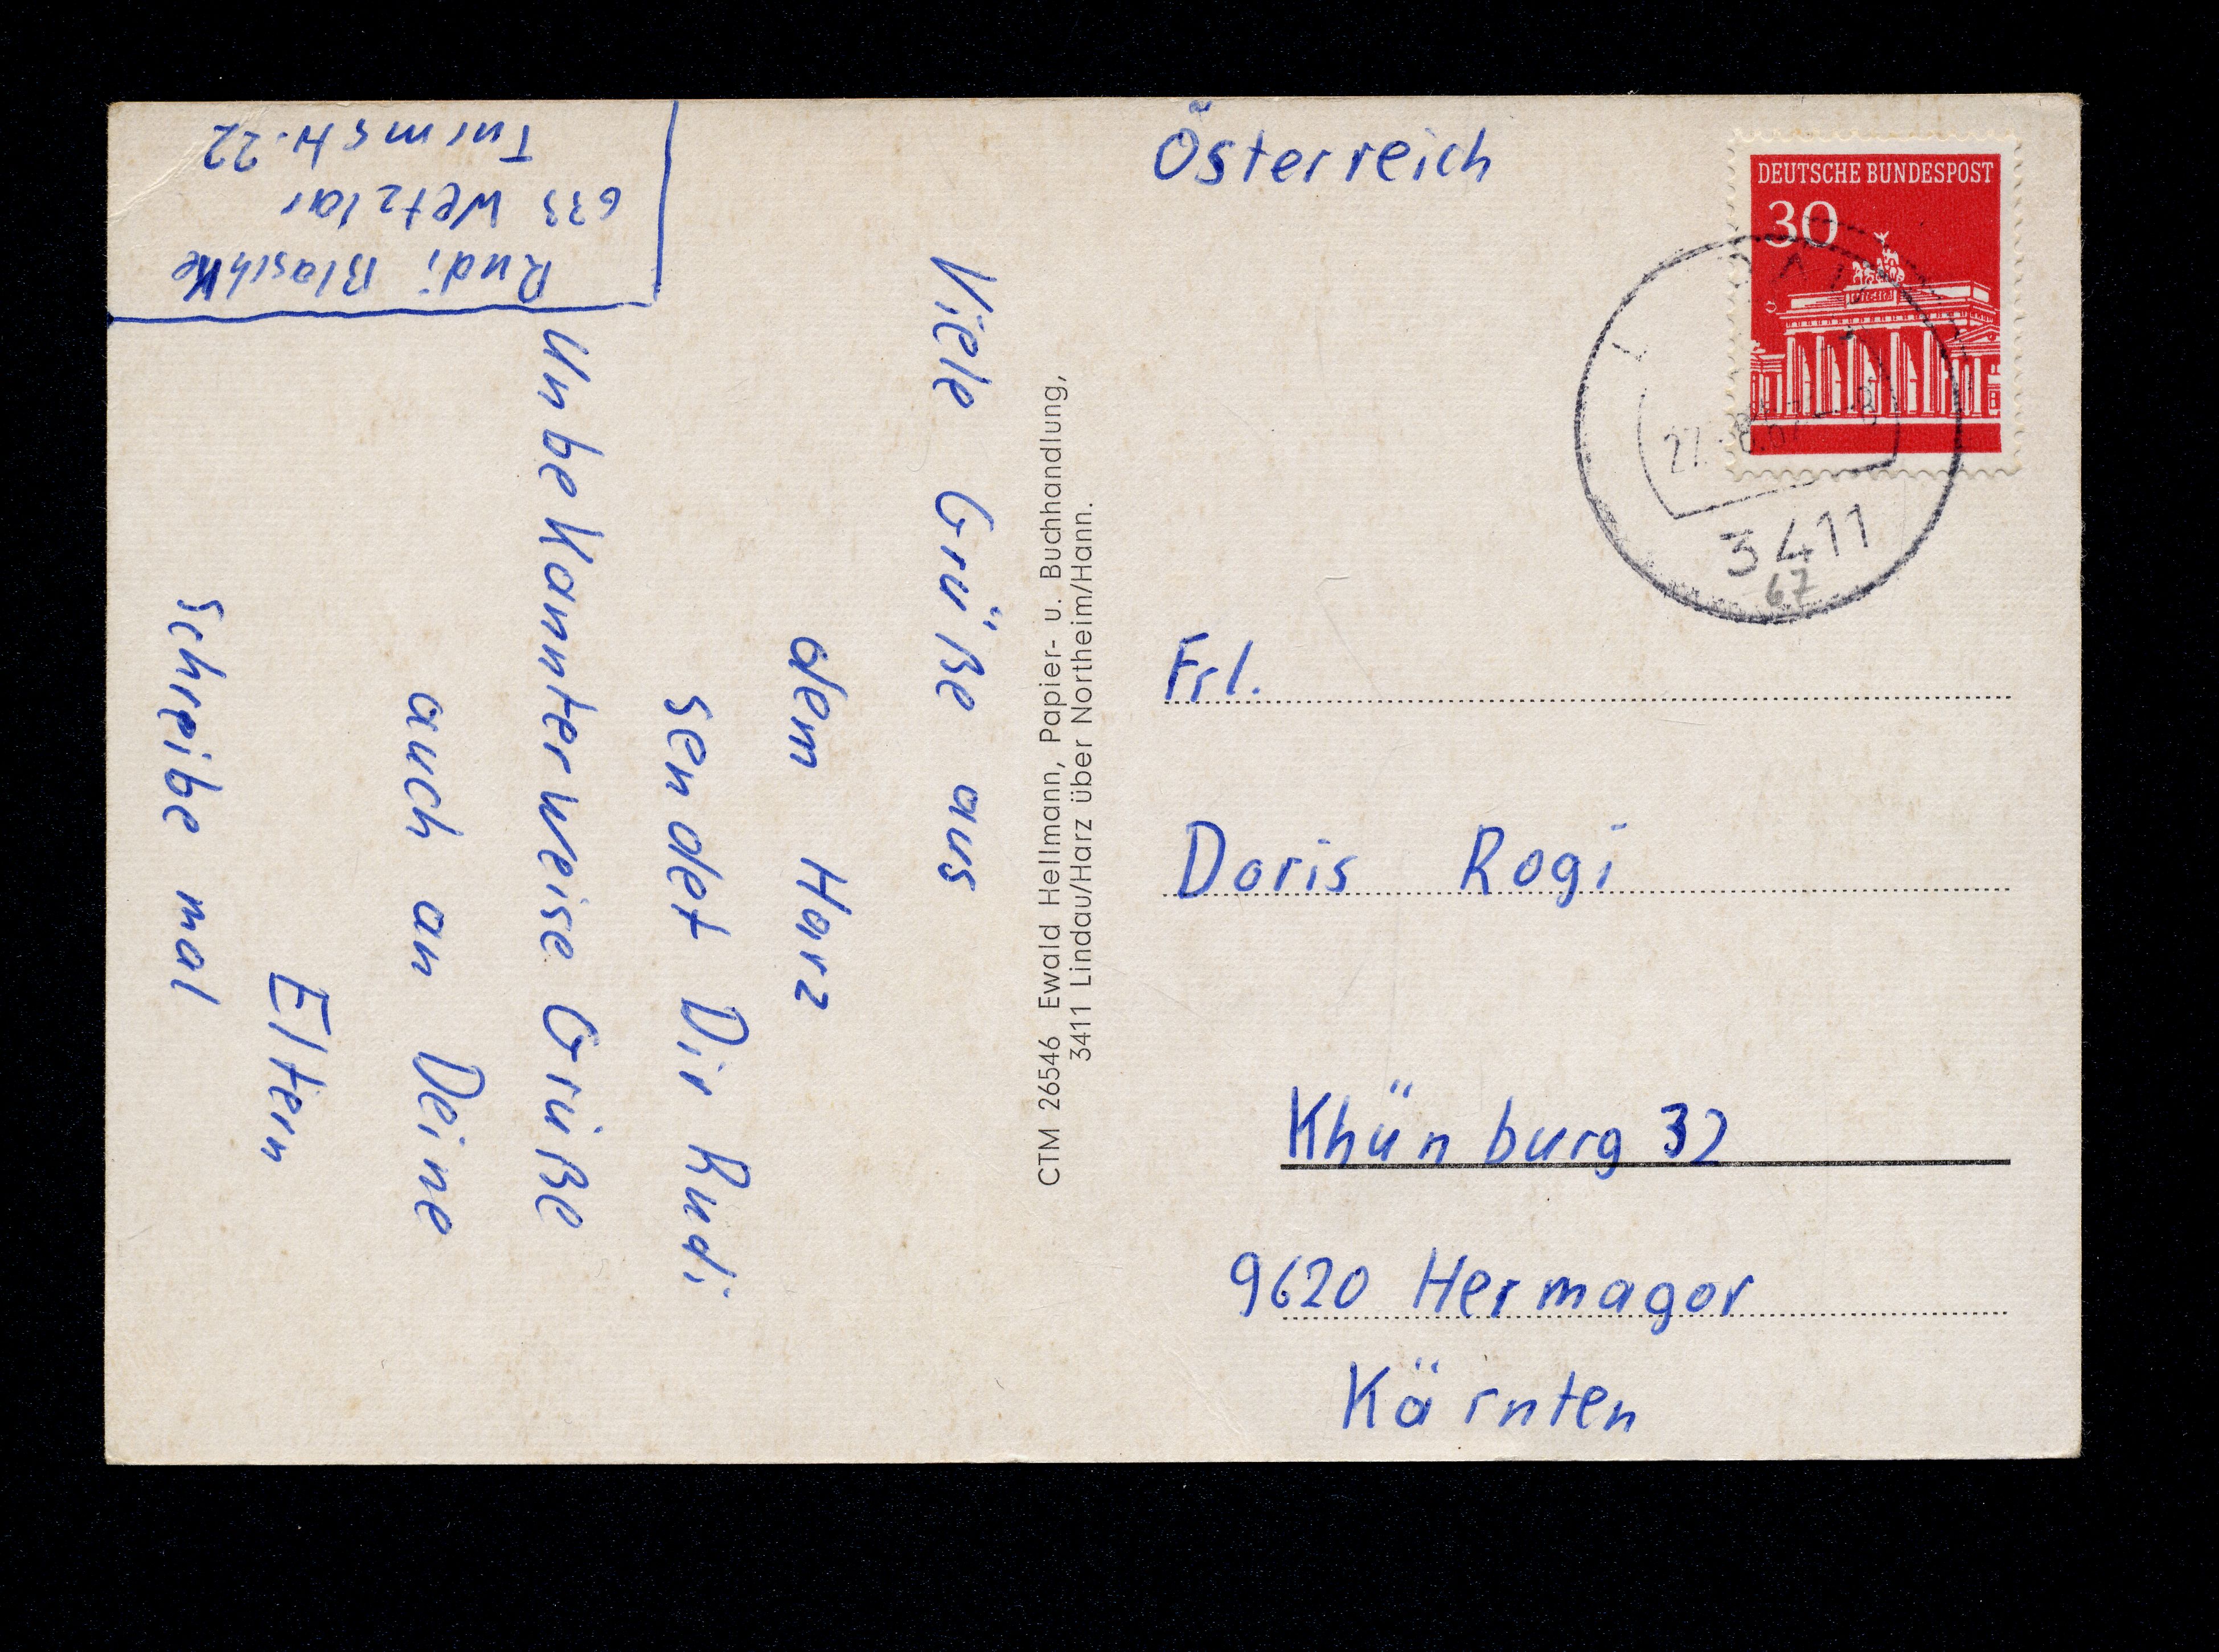 Rudi Blaschke
633 Wetzlar
Turmstr. 22
Viele Grüße aus
dem Harz
sendet Dir Rudi
Unbekannterweise Grüße
auch an Deine
Eltern
Schreibe mal
CTM 26546 Ewald Hellmann, Papier- u. Buchhandlung,
3411 Lindau/Harz über Northeim/Hann.
Österreich
DEUTSCHE BUNDESPOST
30
3411
67
Frl.
Doris Rogi
Khünburg 32
9620 Hermagor
Kärnten